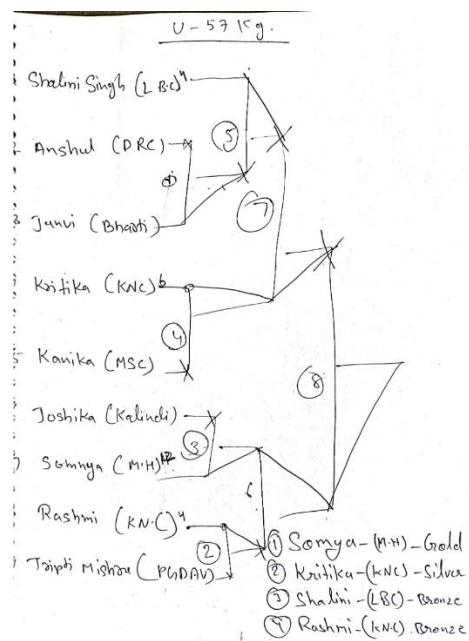 U-57 Kg.
Shalini Singh (LBC)4
Anshul (DRC)
1
5
3 Janvi (Bharti)
7
Kritika (KNC)6
4
5 Kanika (MSC)
8
Joshika (Kalindi)
3
Somnya (M.H)
Rashmi (KN.C)4
6
2
Tripti Mishra (PGDAV)
① Somya-(M.H)-Gold
② Kritika-(KNC)-Silver
③ Shalini-(LBC)-Bronze
④ Rashmi-(KNC). Bronze